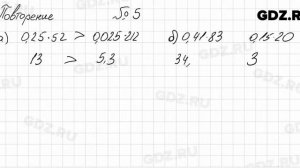 Повторение № 5 GDZ.RU
а) 0,25·52 > 0,025·212 б) 0,41·83 0,15·20
13 > 5,3 34, 3